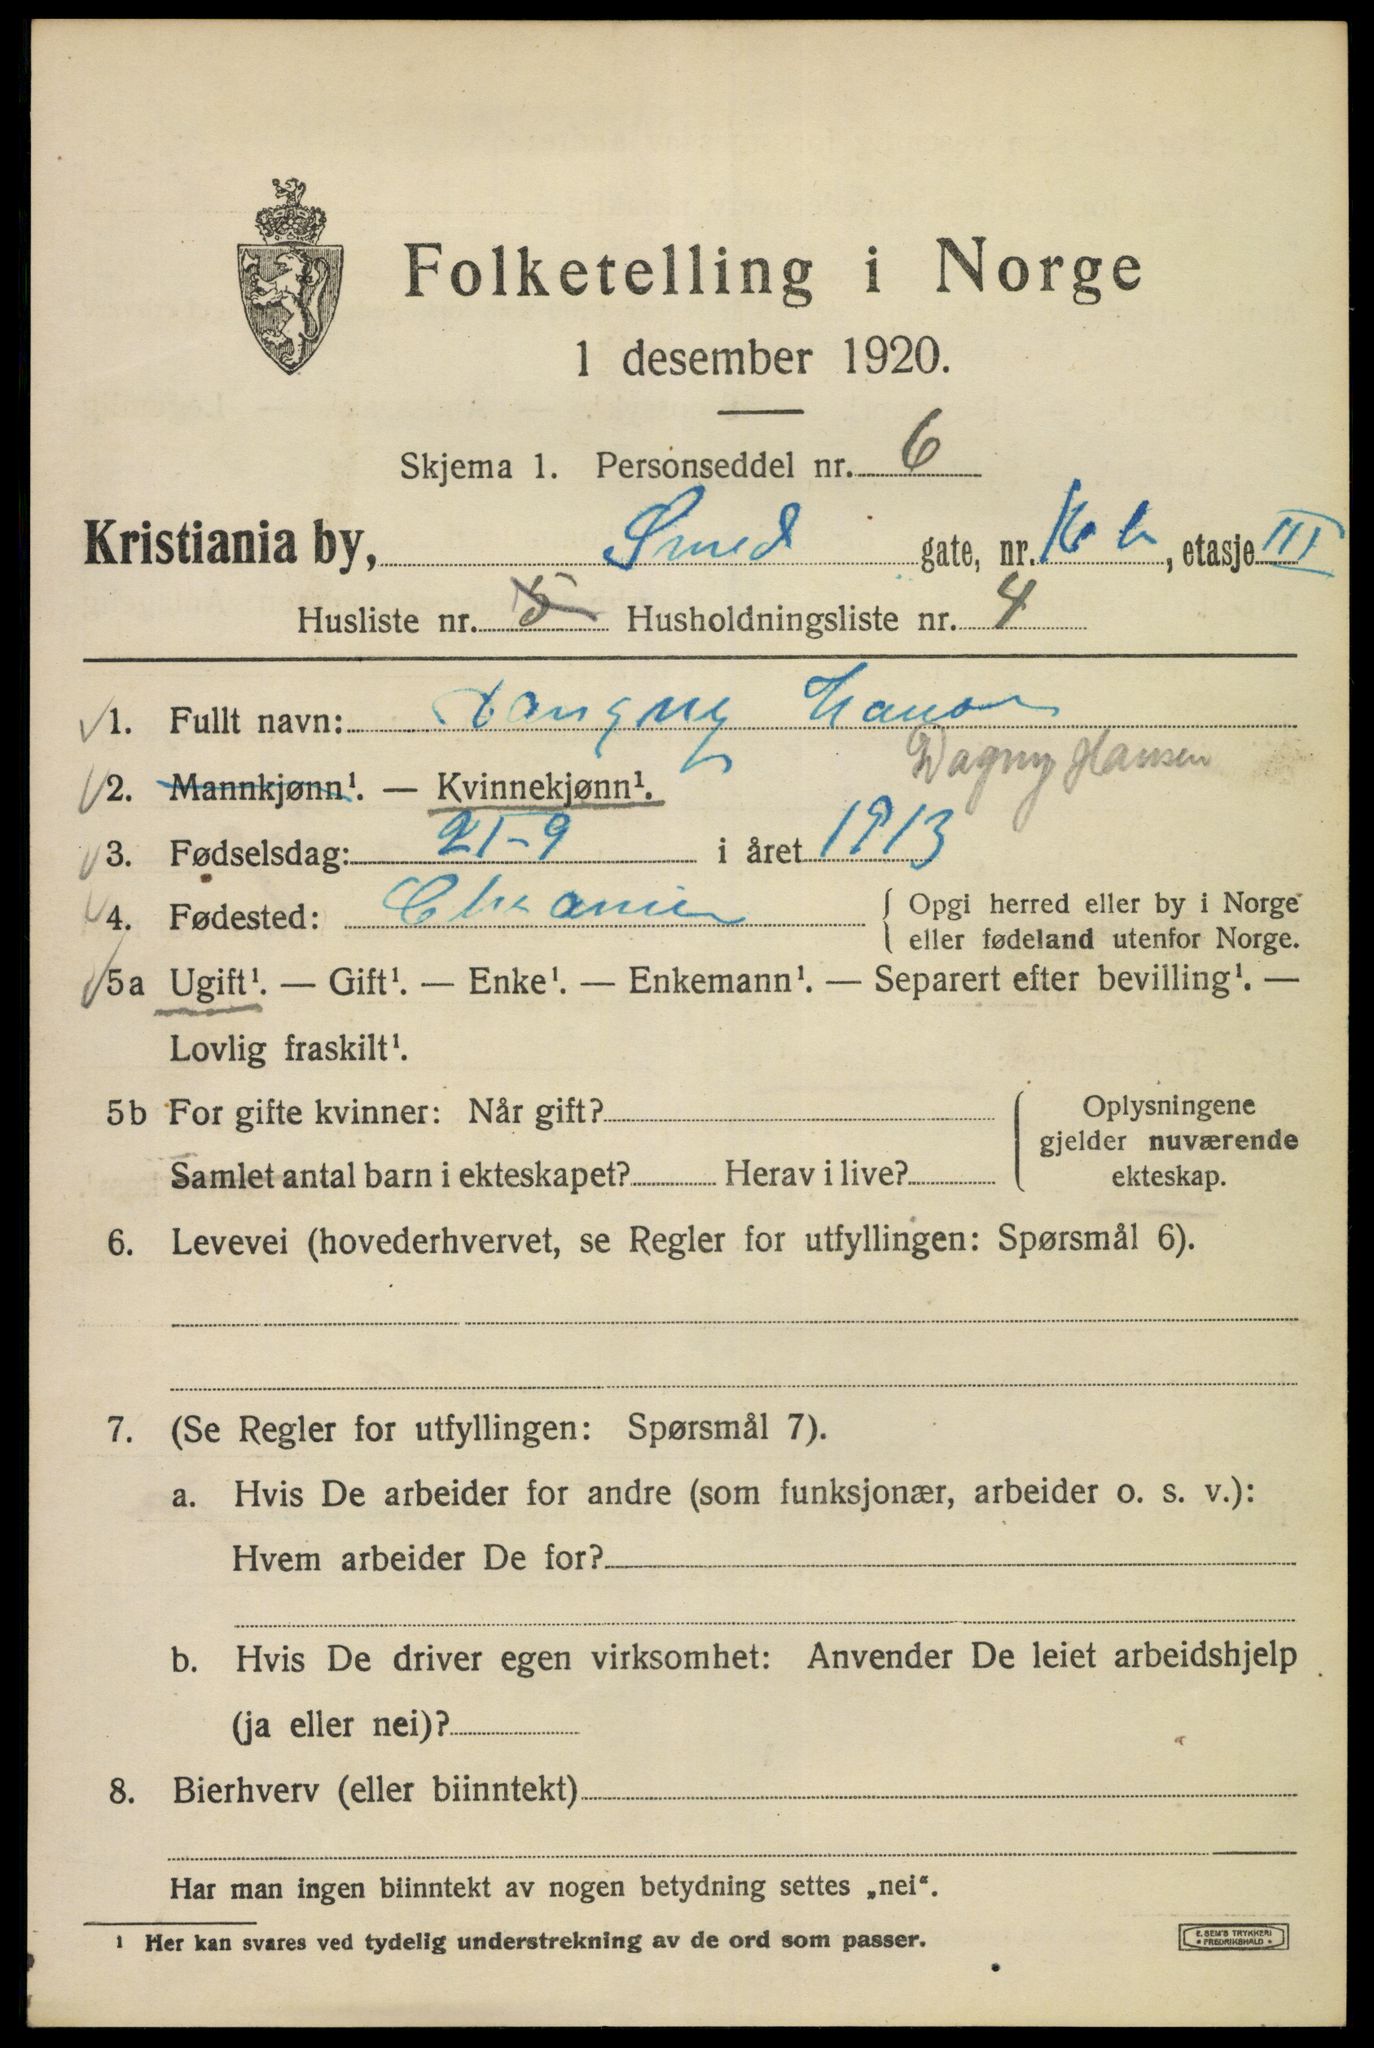 Folketelling i Norge
1 desember 1920.
Skjema 1. Personseddel nr. 6
Kristiania by, Smed gate, nr. 16 b, etasje III
Husliste nr. 5 Husholdningsliste nr. 4
1. Fullt navn: Dangny Hansen
Dagny Hansen
2. Mannkjønn¹. — Kvinnekjønn¹.
3. Fødselsdag: 21-9 i året 1913
4. Fødested: Chr anien { Opgi herred eller by i Norge
eller fødeland utenfor Norge.
5a Ugift¹. — Gift¹. — Enke¹. — Enkemann¹. — Separert efter bevilling¹. —
Lovlig fraskilt¹.
5b For gifte kvinner: Når gift?
Samlet antal barn i ekteskapet? Herav i live?
{ Oplysningene
gjelder nuværende
ekteskap.
6. Levevei (hovederhvervet, se Regler for utfyllingen: Spørsmål 6).
7. (Se Regler for utfyllingen: Spørsmål 7).
a. Hvis De arbeider for andre (som funksjonær, arbeider o. s. v.):
Hvem arbeider De for?
b. Hvis De driver egen virksomhet: Anvender De leiet arbeidshjelp
(ja eller nei)?
8. Bierhverv (eller biinntekt)
Har man ingen biinntekt av nogen betydning settes „nei".
¹ Her kan svares ved tydelig understrekning av de ord som passer.
E. SEM'S TRYKKERI
* FREDRIKSHALD *